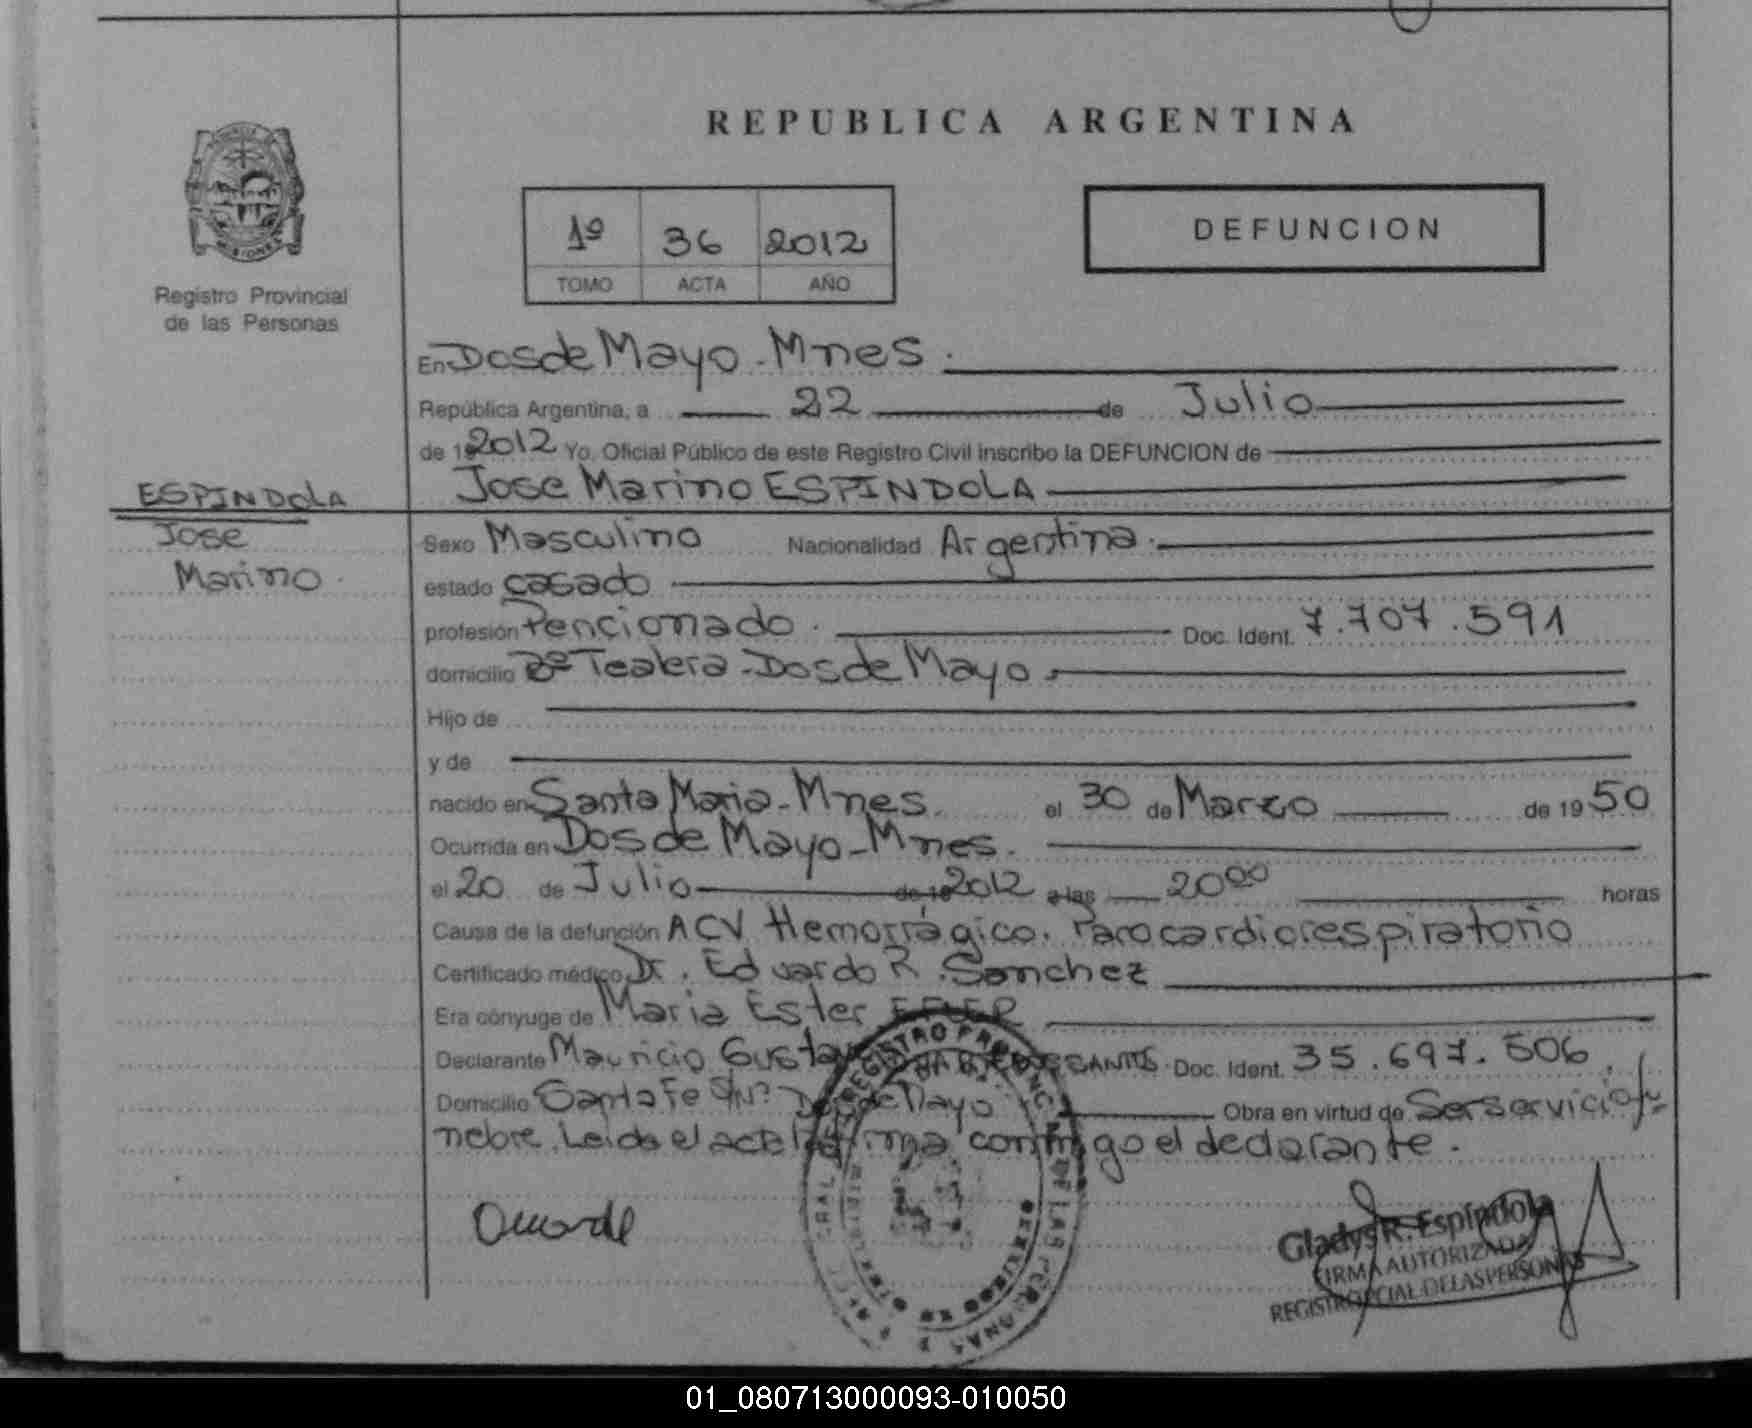 REPUBLICA ARGENTINA
1º 36 2012
TOMO ACTA AÑO
DEFUNCION
MISIONES
Registro Provincial
de las Personas
En Dos de Mayo - Mnes.
República Argentina, a 22 de Julio
de 19 2012 Yo, Oficial Público de este Registro Civil inscribo la DEFUNCION de
Jose Marino ESPINDOLA
ESPINDOLA
Jose
Marino.
Sexo Masculino Nacionalidad Argentina.
estado casado
profesión Pencionado. Doc. Ident. 7.707.591
domicilio Bº Tealera - Dos de Mayo.
Hijo de
y de
nacido en Santa Maria - Mnes. el 30 de Marzo de 19 50
Ocurrida en Dos de Mayo - Mnes.
el 20 de Julio de 19 2012 a las 20 00 horas
Causa de la defunción ACV Hemorrágico. Parocardiorespiratorio
Certificado médico Dr. Eduardo R. Sanchez
Era cónyuge de Maria Ester
Declarante Mauricio Gustavo Doc. Ident. 35.697.506.
Domicilio Santa Fe S/Nº Dos de Mayo Obra en virtud de Ser servicio fu-
nebre. Leida el acta la firma conmigo el declarante.
REGISTRO PROVINCIAL DE LAS PERSONAS
Gladys R. Espíndola
FIRMA AUTORIZADA
REGISTRO PCIAL DE LAS PERSONAS
01_080713000093-010050